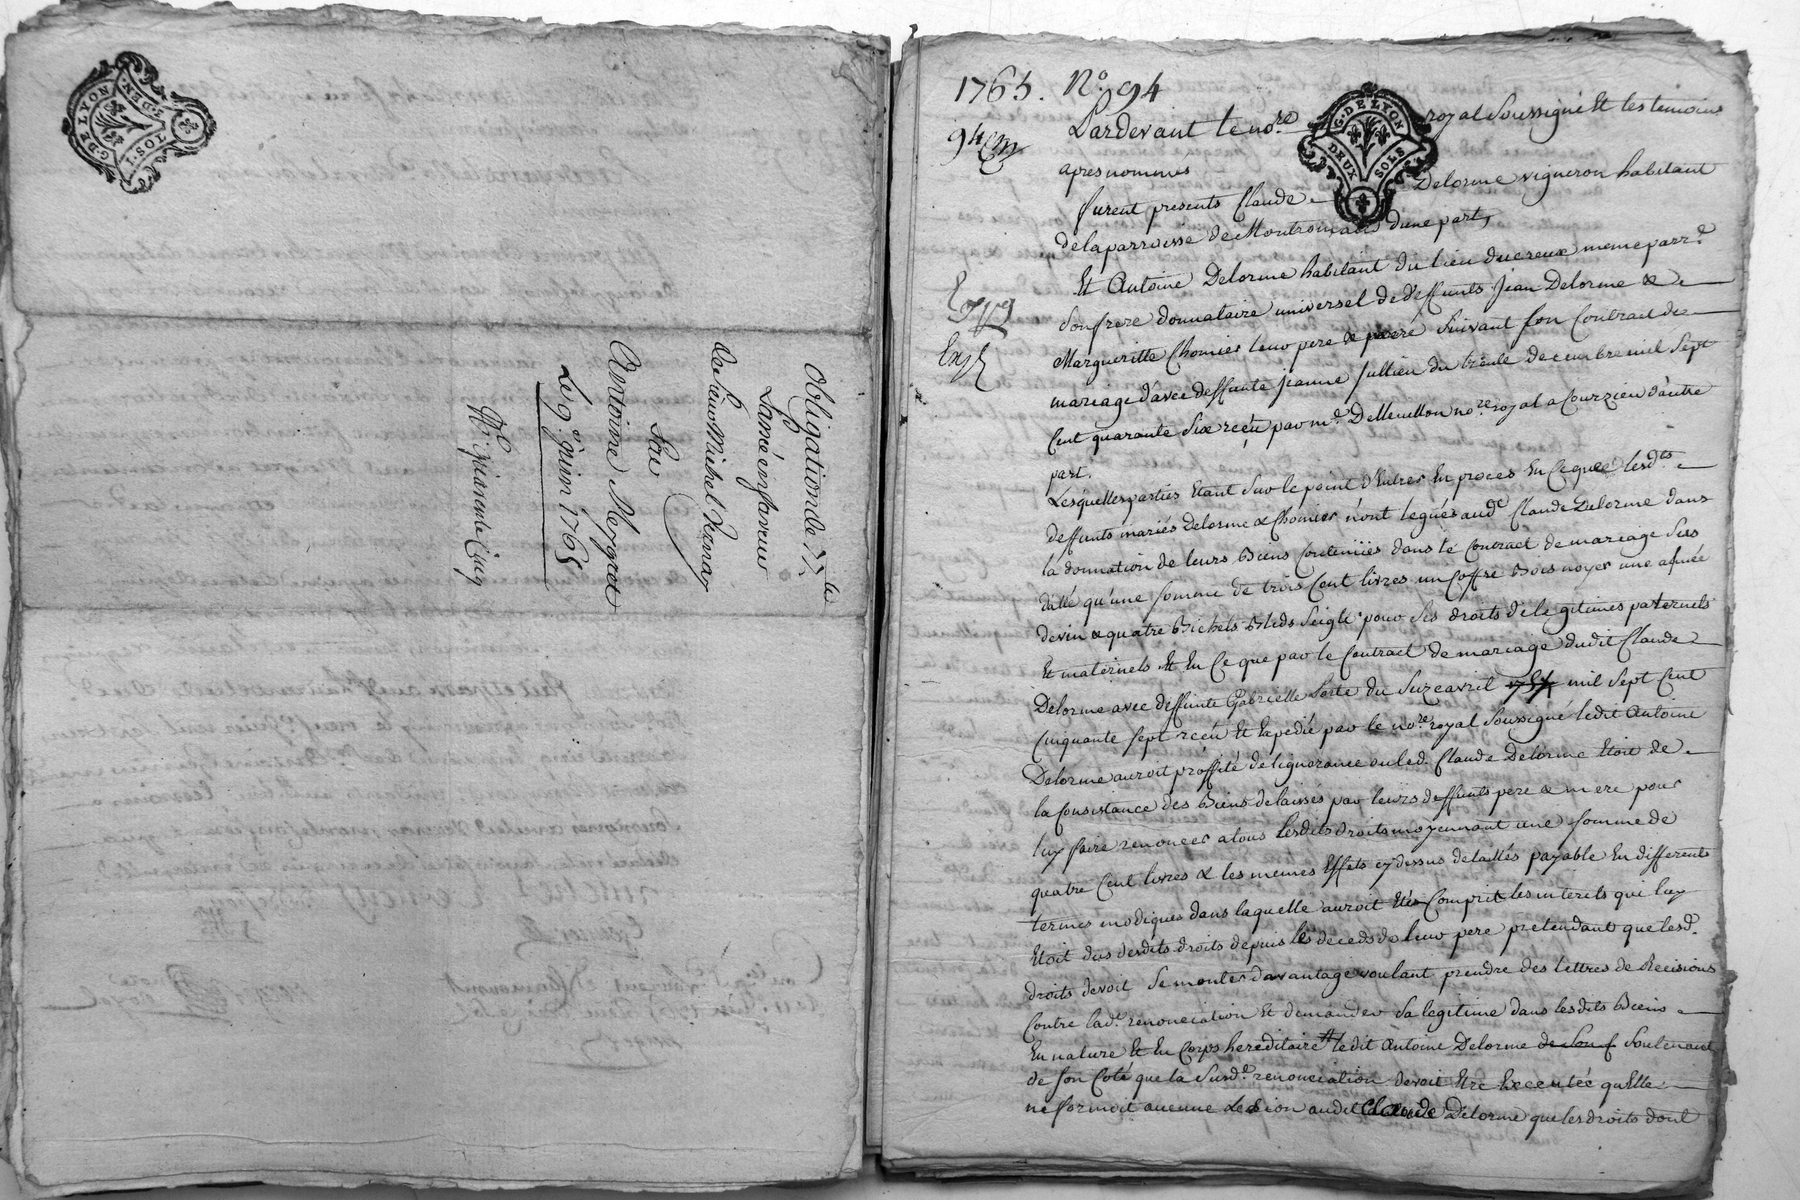 G·DE LYON
I·SOL
2·DEN
Obligation de 77 lt
Passée en faveur
de Sieur Michel Ferna
Par
Antoine Mergnet
Le 9e juin 1765
Nº quarante Cinq
1765. Nº 94
94
G·DE LYON
DEUX SOLS
Pardevant le nore royal Soussigné Et les temoins
apres nommés
furent presents Claude Delorme vigneron habitant
de la parroisse de Montromand d'une part,
Et Antoine Delorme habitant du lieu du creux meme parre
Son frere donnataire universel de deffunts Jean Delorme &
Margueritte Chomier leur pere & mere Suivant Son Contract de
mariage d'avec deffunte jeanne jullien du trente decembre mil Sept
Cent quarante Six reçeu par me Delleuillon nore royal a Courzieu d'autre
part.
Lesquelles parties Etant Sur le point d'Entrer En proces En Ce que lesdts
deffunts mariés Delorme & Chomier n'ont legués aude Claude Delorme dans
la donnation de leurs Biens Contenües dans le Contract de mariage Sus
datté qu'une Somme de trois Cent livres un Coffre Bois noyer une asnée
de vin & quatre Bichets Bleds Seigle pour Ses droits de legitimes paternels
Et maternels Et En Ce que par le Contract de mariage dudit Claude
Delorme avec deffunte Gabrielle Sorte du Suze avril mil Sept Cent
Cinquante Sept reçeu Et Expedié par le nore royal Soussigné ledit Antoine
Delorme auroit proffité de lignorance ou led. Claude Delorme Etoit de
la Consistance des Biens delaissés par leurs deffunts pere & mere pour
luy faire renoncer a tous lesdits droits moyennant une Somme de
quatre Cent livres & les memes Effets cy dessus detaillés payable En differents
termes modiques dans laquelle auroit Etés Comprit les interets qui luy
Etoit dus desdits droits depuis les deceds de leur pere pretendant que lesd.
droits devoit Se monter davantage voulant prendre des lettres de Recisions
Contre lade renonciation Et demander Sa legitime dans lesdits Biens
En nature Et En Corps hereditaire ledit Antoine Delorme de Son f Soutenant
de Son Coté que la Susde renonciation devoit Etre Executée quElle
ne formoit aucune Lesion audit Claude Delorme que les droits dont